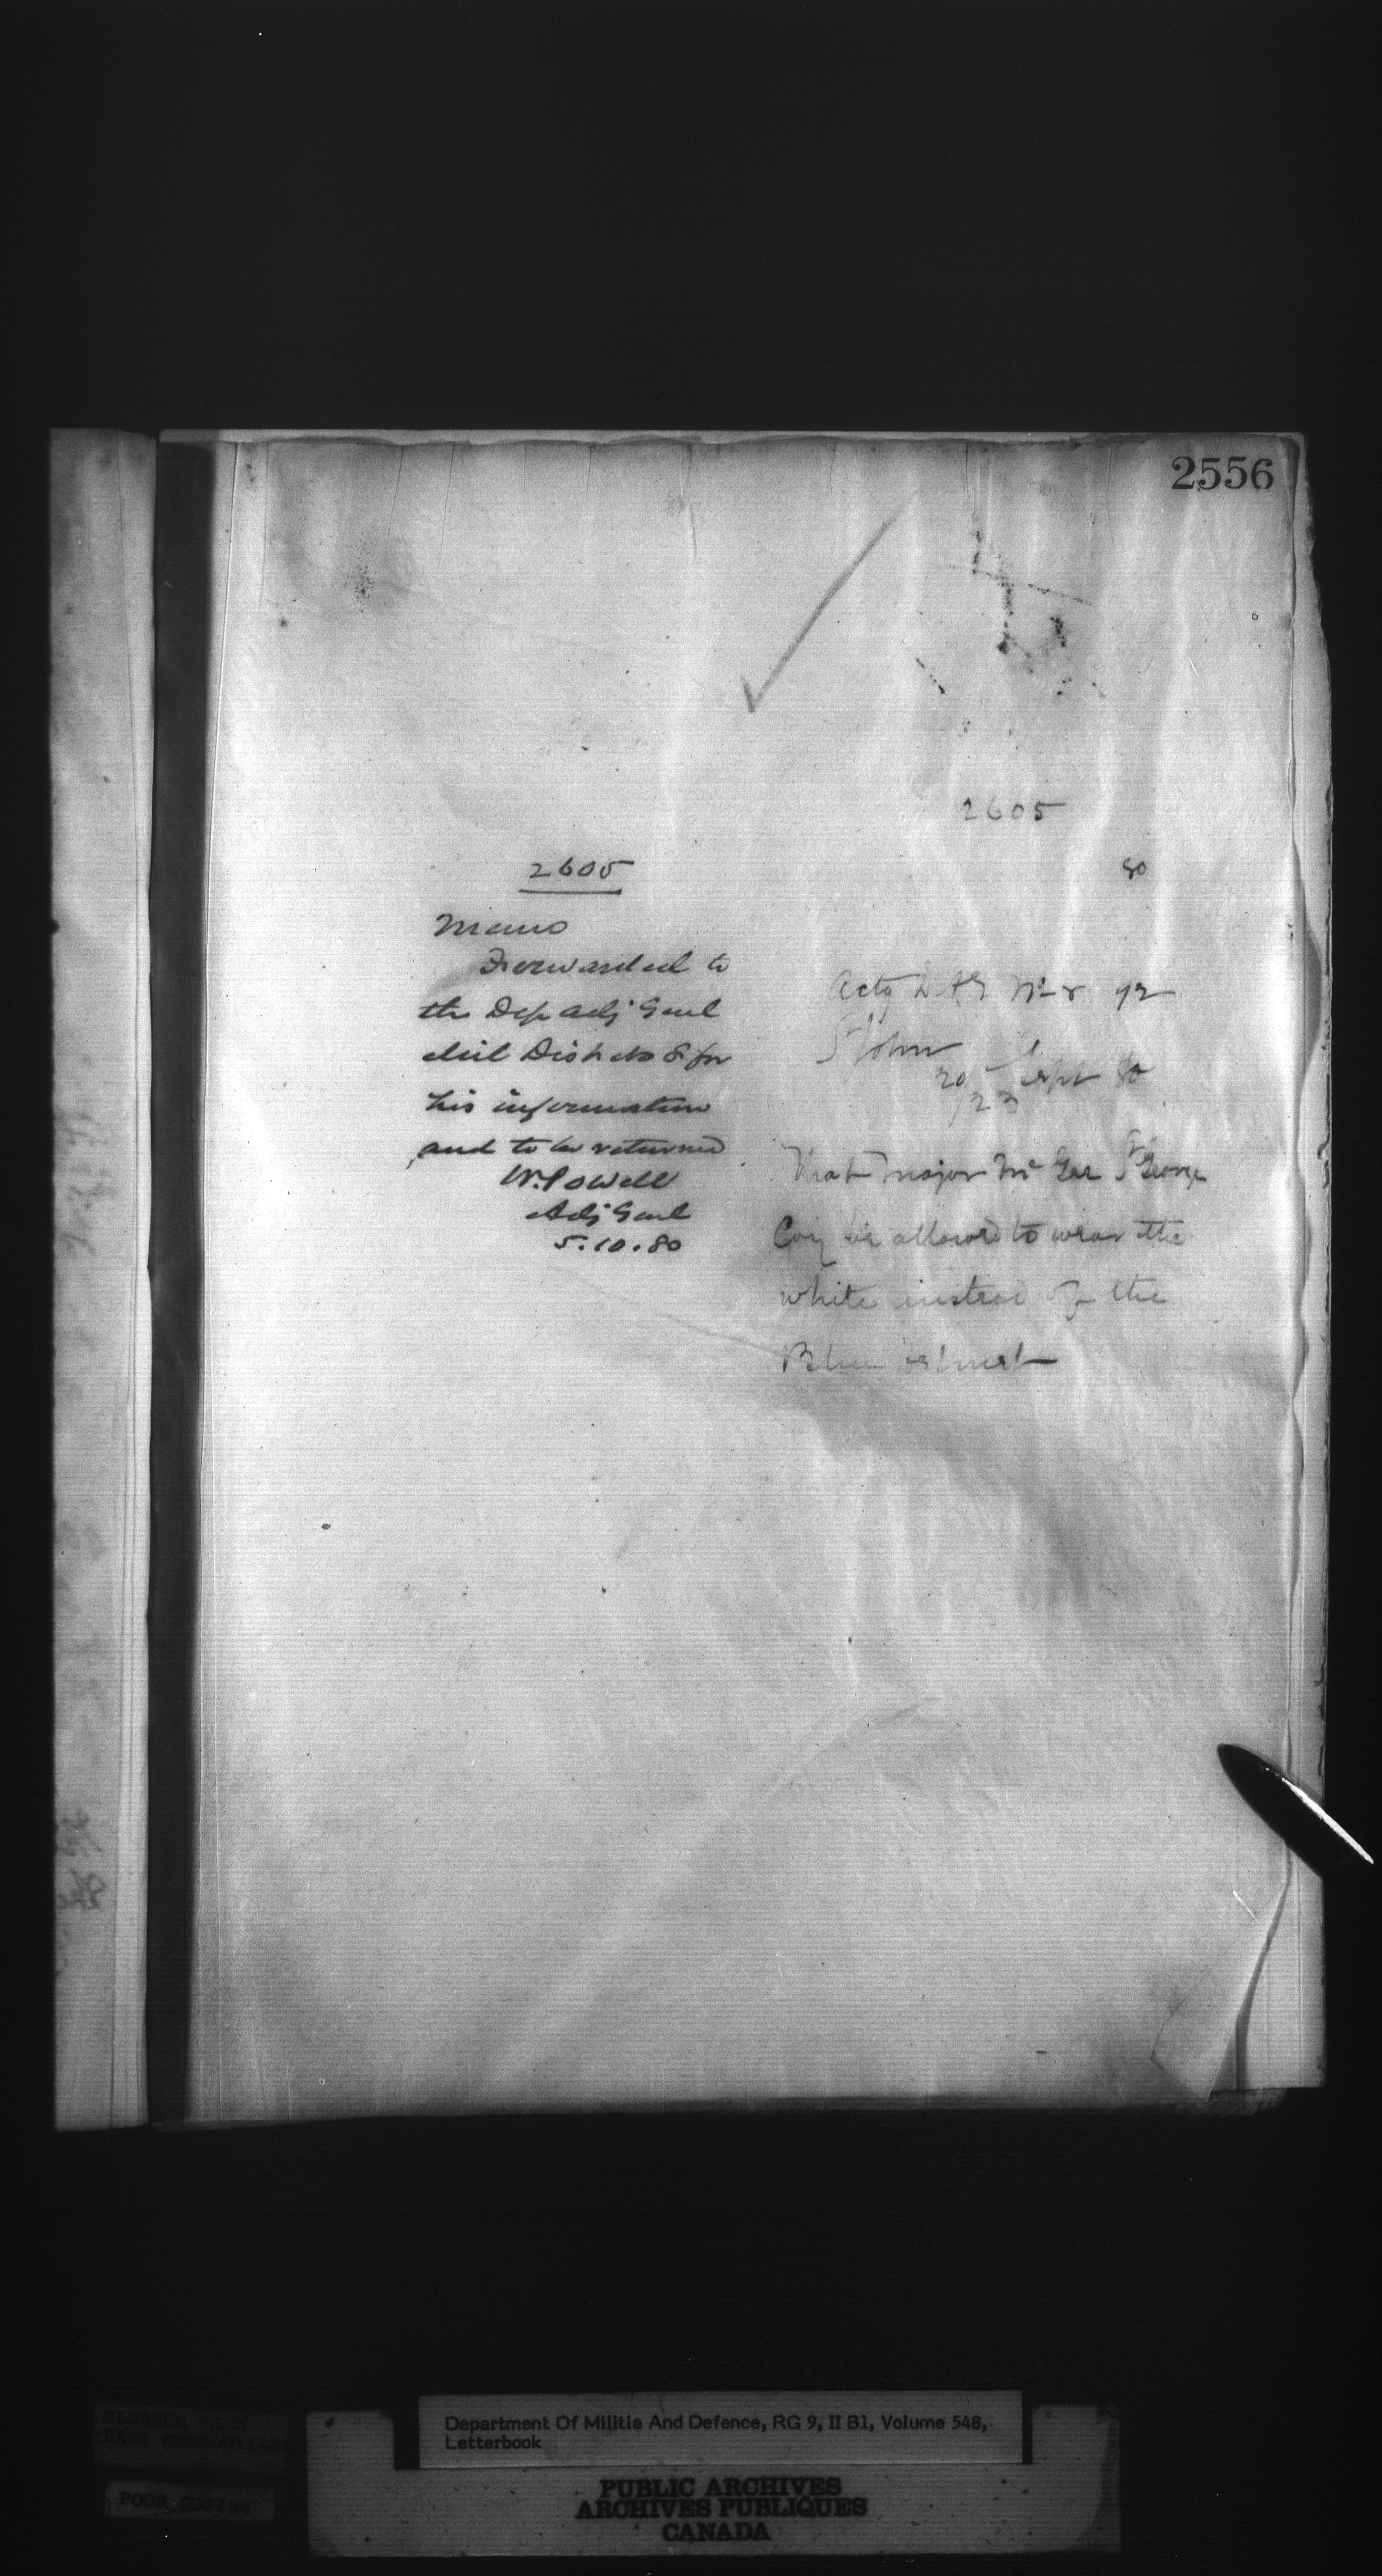 2556
2605
80
2605
Memo
Forwarded to
the Dep Adj Genl
Mil Dist No 8 for
his information
and to be returned
W. Powell
Adj Genl
5.10.80
Actg DAG No 8 92
St John
20 Sept 80
/23
That Major McGee St George
Coy be allowed to wear the
white instead of the
Blue helmet
Department Of Militia And Defence, RG 9, II B1, Volume 548,
Letterbook
BLURRED PAGE
PAGE EMBROUILLEE
POOR COPIES
PUBLIC ARCHIVES
ARCHIVES PUBLIQUES
CANADA